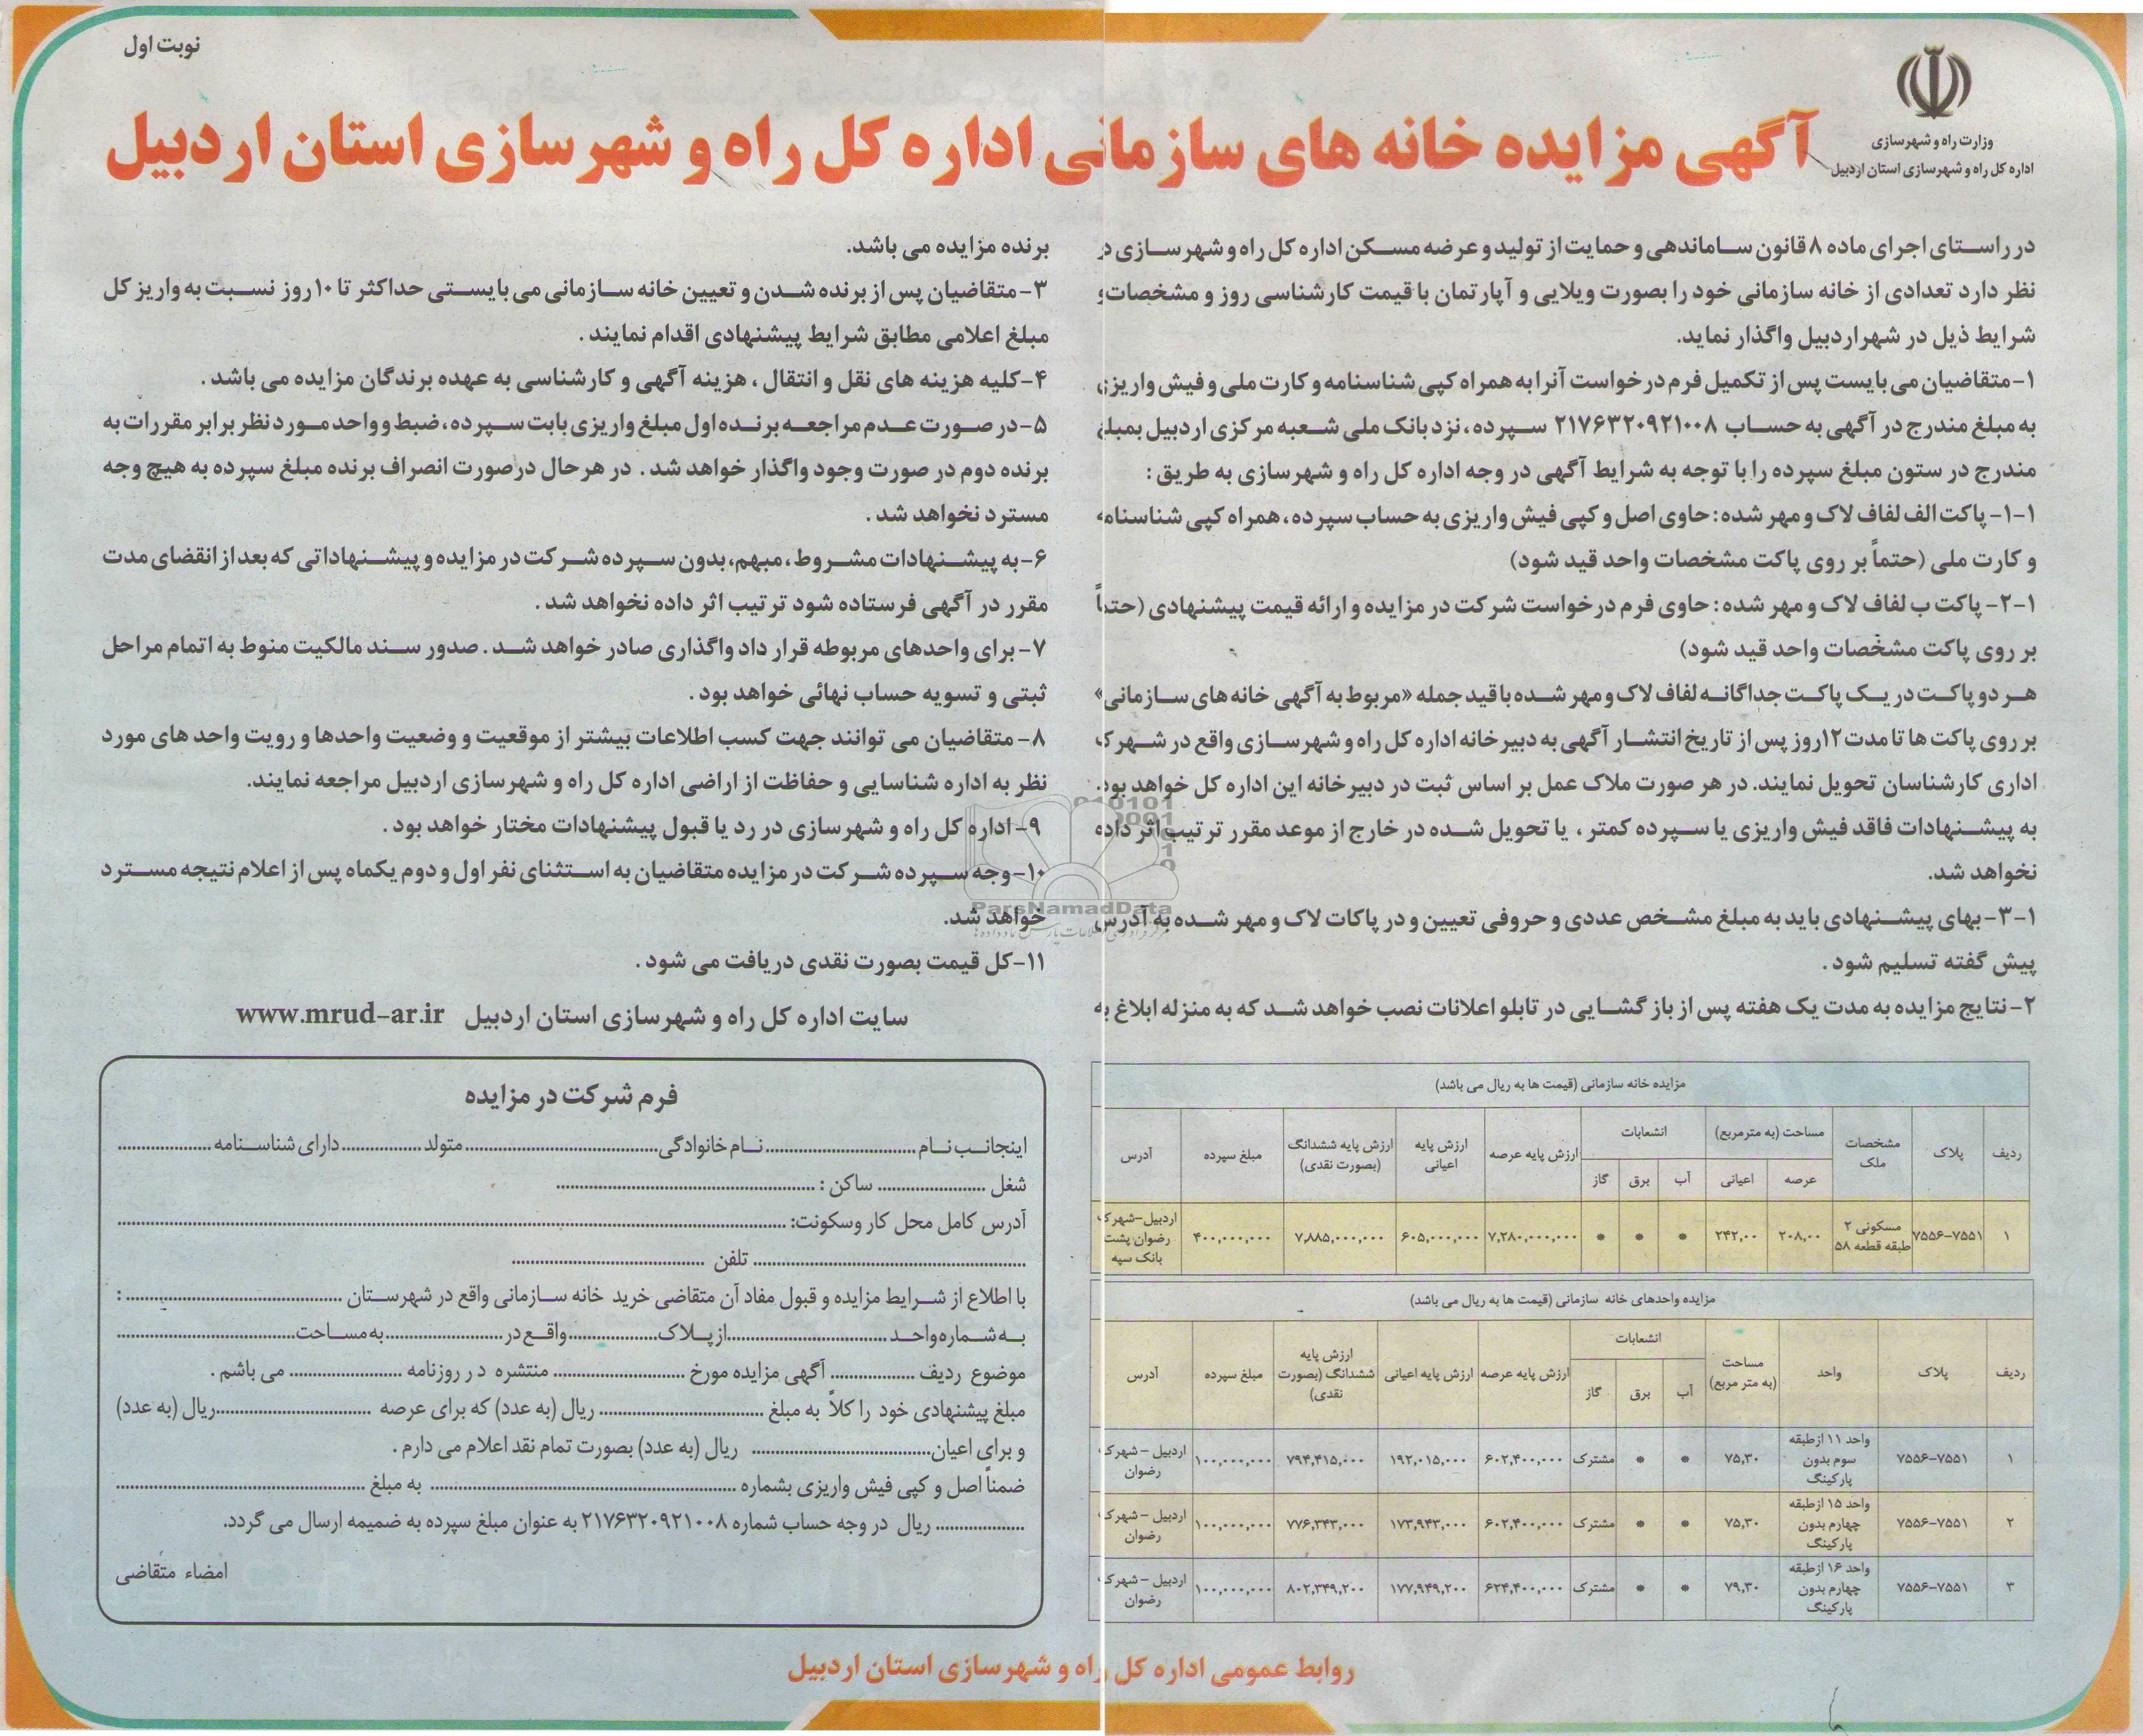 نوبت اول
وزارت راه و شهرسازی
اداره کل راه و شهرسازی استان اردبیل
آگهی مزایده خانه های سازمانی اداره کل راه و شهرسازی استان اردبیل
در راستای اجرای ماده ۸ قانون ساماندهی و حمایت از تولید و عرضه مسکن اداره کل راه و شهرسازی در
نظر دارد تعدادی از خانه سازمانی خود را بصورت ویلایی و آپارتمان با قیمت کارشناسی روز و مشخصات و
شرایط ذیل در شهر اردبیل واگذار نماید.
۱-متقاضیان می بایست پس از تکمیل فرم درخواست آنرا به همراه کپی شناسنامه و کارت ملی و فیش واریزی
به مبلغ مندرج در آگهی به حساب ۲۱۷۶۳۲۰۹۲۱۰۰۸ سپرده، نزد بانک ملی شعبه مرکزی اردبیل بمبلغ
مندرج در ستون مبلغ سپرده را با توجه به شرایط آگهی در وجه اداره کل راه و شهرسازی به طریق :
۱-۱- پاکت الف لفاف لاک و مهر شده : حاوی اصل و کپی فیش واریزی به حساب سپرده، همراه کپی شناسنامه
و کارت ملی (حتماً بر روی پاکت مشخصات واحد قید شود)
۱-۲- پاکت ب لفاف لاک و مهر شده : حاوی فرم درخواست شرکت در مزایده و ارائه قیمت پیشنهادی (حتماً
بر روی پاکت مشخصات واحد قید شود)
هر دو پاکت در یک پاکت جداگانه لفاف لاک و مهر شده با قید جمله «مربوط به آگهی خانه های سازمانی»
بر روی پاکت ها تا مدت ۱۲روز پس از تاریخ انتشار آگهی به دبیرخانه اداره کل راه و شهرسازی واقع در شهرک
اداری کارشناسان تحویل نمایند. در هر صورت ملاک عمل بر اساس ثبت در دبیرخانه این اداره کل خواهد بود.
به پیشنهادات فاقد فیش واریزی یا سپرده کمتر ، یا تحویل شده در خارج از موعد مقرر ترتیب اثر داده
نخواهد شد.
۱-۳-بهای پیشنهادی باید به مبلغ مشخص عددی و حروفی تعیین و در پاکات لاک و مهر شده به آدرس
پیش گفته تسلیم شود .
۲-نتایج مزایده به مدت یک هفته پس از باز گشایی در تابلو اعلانات نصب خواهد شد که به منزله ابلاغ به
برنده مزایده می باشد.
۳-متقاضیان پس از برنده شدن و تعیین خانه سازمانی می بایستی حداکثر تا ۱۰روز نسبت به واریز کل
مبلغ اعلامی مطابق شرایط پیشنهادی اقدام نمایند .
۴-کلیه هزینه های نقل و انتقال ، هزینه آگهی و کارشناسی به عهده برندگان مزایده می باشد .
۵-در صورت عدم مراجعه برنده اول مبلغ واریزی بابت سپرده، ضبط و واحد مورد نظر برابر مقررات به
برنده دوم در صورت وجود واگذار خواهد شد . در هر حال درصورت انصراف برنده مبلغ سپرده به هیچ وجه
مسترد نخواهد شد .
۶-به پیشنهادات مشروط، مبهم، بدون سپرده شرکت در مزایده و پیشنهاداتی که بعد از انقضای مدت
مقرر در آگهی فرستاده شود ترتیب اثر داده نخواهد شد .
۷-برای واحدهای مربوطه قرار داد واگذاری صادر خواهد شد . صدور سند مالکیت منوط به اتمام مراحل
ثبتی و تسویه حساب نهائی خواهد بود .
۸-متقاضیان می توانند جهت کسب اطلاعات بیشتر از موقعیت و وضعیت واحدها و رویت واحد های مورد
نظر به اداره شناسایی و حفاظت از اراضی اداره کل راه و شهرسازی اردبیل مراجعه نمایند.
۹-اداره کل راه و شهرسازی در رد یا قبول پیشنهادات مختار خواهد بود .
۱۰-وجه سپرده شرکت در مزایده متقاضیان به استثنای نفر اول و دوم یکماه پس از اعلام نتیجه مسترد
خواهد شد.
۱۱-کل قیمت بصورت نقدی دریافت می شود .
سایت اداره کل راه و شهرسازی استان اردبیل www.mrud-ar.ir
ParsNamadData
مزایده خانه سازمانی (قیمت ها به ریال می باشد)
ردیف | پلاک | مشخصات ملک | مساحت (به مترمربع) عرصه | اعیانی | انشعابات آب | برق | گاز | ارزش پایه عرصه | ارزش پایه اعیانی | ارزش پایه ششدانگ (بصورت نقدی) | مبلغ سپرده | آدرس
۱ | ۷۵۵۶-۷۵۵۱ | مسکونی ۲ طبقه قطعه ۵۸ | ۲۰۸,۰۰ | ۲۴۲,۰۰ | * | * | * | ۷,۲۸۰,۰۰۰,۰۰۰ | ۶۰۵,۰۰۰,۰۰۰ | ۷,۸۸۵,۰۰۰,۰۰۰ | ۴۰۰,۰۰۰,۰۰۰ | اردبیل-شهرک رضوان پشت بانک سپه
مزایده واحدهای خانه سازمانی (قیمت ها به ریال می باشد)
ردیف | پلاک | واحد | مساحت (به متر مربع) | انشعابات آب | برق | گاز | ارزش پایه عرصه | ارزش پایه اعیانی | ارزش پایه ششدانگ (بصورت نقدی) | مبلغ سپرده | آدرس
۱ | ۷۵۵۶-۷۵۵۱ | واحد ۱۱ ازطبقه سوم بدون پارکینگ | ۷۵,۳۰ | * | * | مشترک | ۶۰۲,۴۰۰,۰۰۰ | ۱۹۲,۰۱۵,۰۰۰ | ۷۹۴,۴۱۵,۰۰۰ | ۱۰۰,۰۰۰,۰۰۰ | اردبیل - شهرک رضوان
۲ | ۷۵۵۶-۷۵۵۱ | واحد ۱۵ ازطبقه چهارم بدون پارکینگ | ۷۵,۳۰ | * | * | مشترک | ۶۰۲,۴۰۰,۰۰۰ | ۱۷۳,۹۴۳,۰۰۰ | ۷۷۶,۳۴۳,۰۰۰ | ۱۰۰,۰۰۰,۰۰۰ | اردبیل - شهرک رضوان
۳ | ۷۵۵۶-۷۵۵۱ | واحد ۱۶ ازطبقه چهارم بدون پارکینگ | ۷۹,۳۰ | * | * | مشترک | ۶۲۴,۴۰۰,۰۰۰ | ۱۷۷,۹۴۹,۲۰۰ | ۸۰۲,۳۴۹,۲۰۰ | ۱۰۰,۰۰۰,۰۰۰ | اردبیل - شهرک رضوان
فرم شرکت در مزایده
اینجانب نام .......... نام خانوادگی .......... متولد .......... دارای شناسنامه ..........
شغل .......... ساکن : ..........
آدرس کامل محل کار وسکونت: ..........
.......... تلفن ..........
با اطلاع از شرایط مزایده و قبول مفاد آن متقاضی خرید خانه سازمانی واقع در شهرستان .......... :
به شماره واحد .......... از پلاک .......... واقع در .......... به مساحت ..........
موضوع ردیف .......... آگهی مزایده مورخ .......... منتشره در روزنامه .......... می باشم .
مبلغ پیشنهادی خود را کلاً به مبلغ .......... ریال (به عدد) که برای عرصه .......... ریال (به عدد)
و برای اعیان .......... ریال (به عدد) بصورت تمام نقد اعلام می دارم .
ضمناً اصل و کپی فیش واریزی بشماره .......... به مبلغ ..........
.......... ریال در وجه حساب شماره ۲۱۷۶۳۲۰۹۲۱۰۰۸ به عنوان مبلغ سپرده به ضمیمه ارسال می گردد.
امضاء متقاضی
روابط عمومی اداره کل راه و شهرسازی استان اردبیل